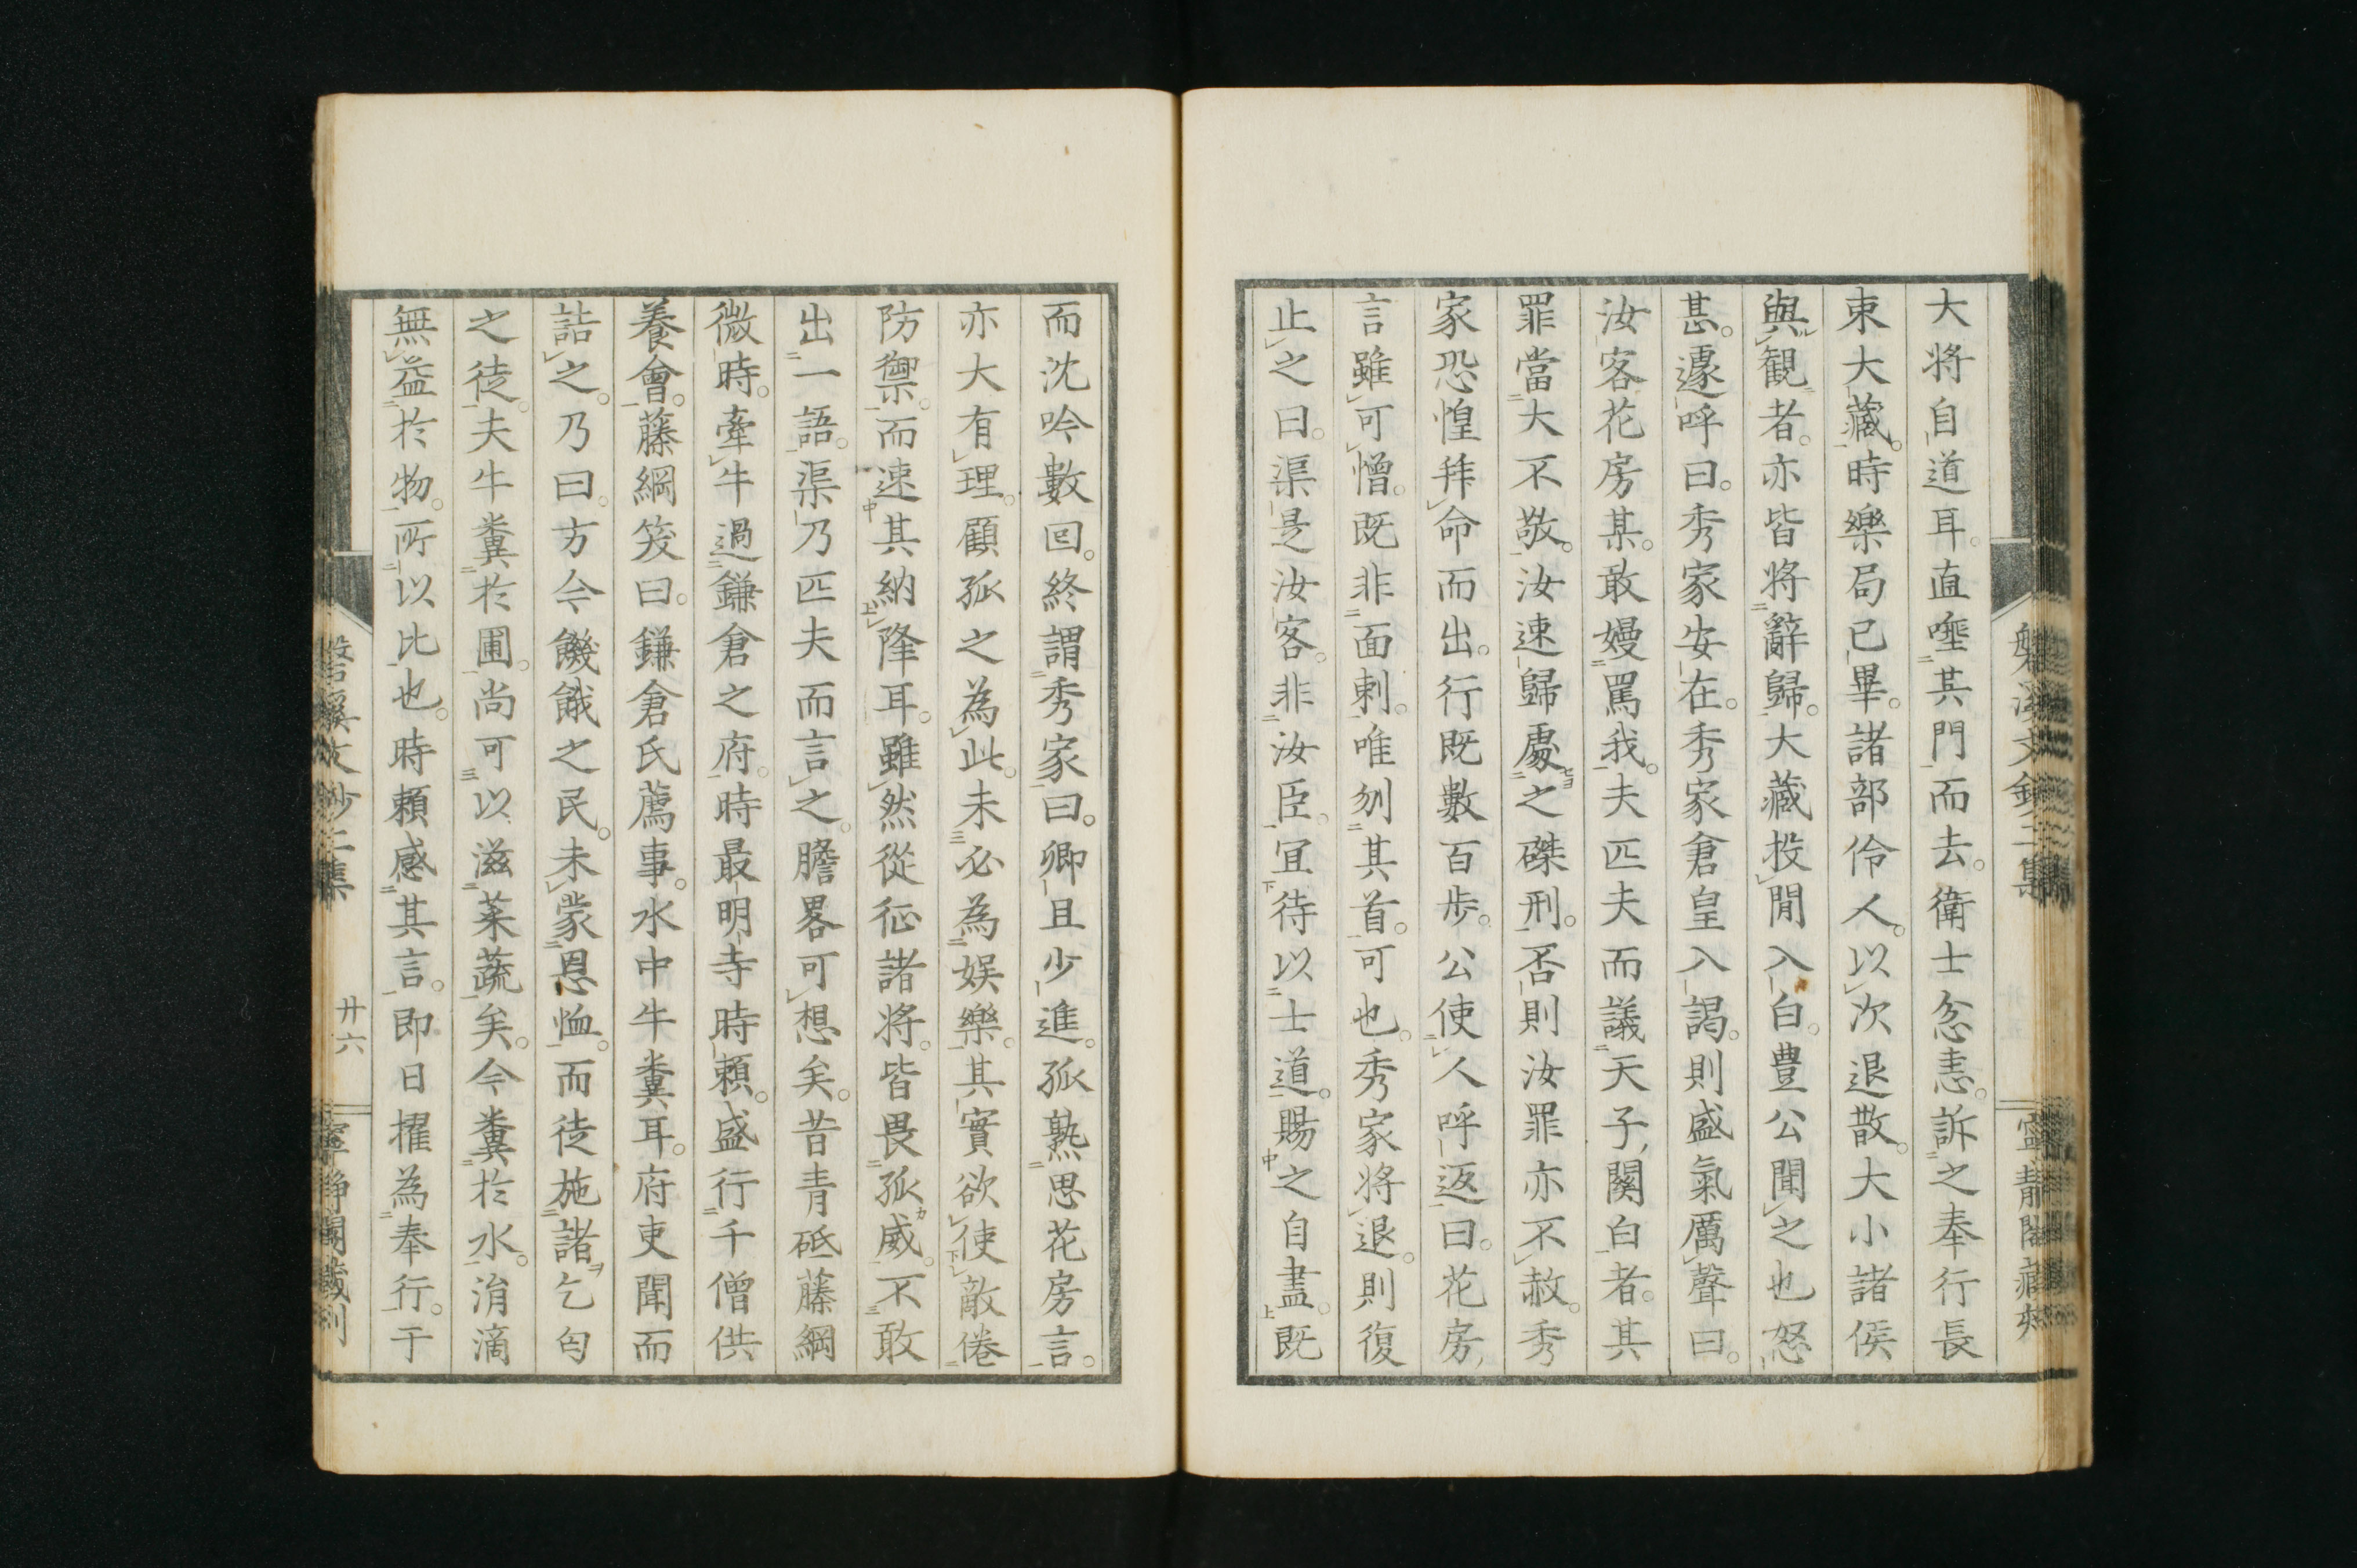 大将自道耳。直唾其門而去。衛士忿恚。訴之奉行長
束大藏。時樂局已畢。諸部伶人。以次退散。大小諸侯
與觀者。亦皆将辭歸。大藏投間入白。豊公聞之也怒
甚。遽呼曰。秀家安在。秀家倉皇入謁。則盛氣厲聲曰。
汝客花房某。敢嫚罵我。夫匹夫而議天子関白者。其
罪當大不敬。汝速歸處之磔刑。否則汝罪亦不赦。秀
家恐惶拜命而出。行既數百步。公使人呼返曰。花房
言雖可憎。既非面刺。唯刎其首。可也。秀家将退。則復
止之曰。渠是汝客。非汝臣。宜待以士道。賜之自盡。既
而沈吟數回。終謂秀家曰。卿且少進。孤熟思花房言。
亦大有理。顧孤之為此。未必為娱樂。其實欲使敵倦
防禦。而速其納降耳。雖然從征諸将。皆畏孤威。不敢
出一語。渠乃匹夫而言之。膽畧可想矣。昔青砥藤綱
微時。牽牛過鎌倉之府。時最明寺時頼。盛行千僧供
養會。藤綱笑曰。鎌倉氏薦事。水中牛糞耳。府吏聞而
詰之。乃曰。方今饑餓之民。未蒙恩恤。而徒施諸乞匈
之徒。夫牛糞於圃。尚可以滋菜蔬矣。今糞於水。涓滴
無益於物。所以比也。時頼感其言。即日擢為奉行。于
磐溪文鈔二集
廿六
寧静閣藏刻